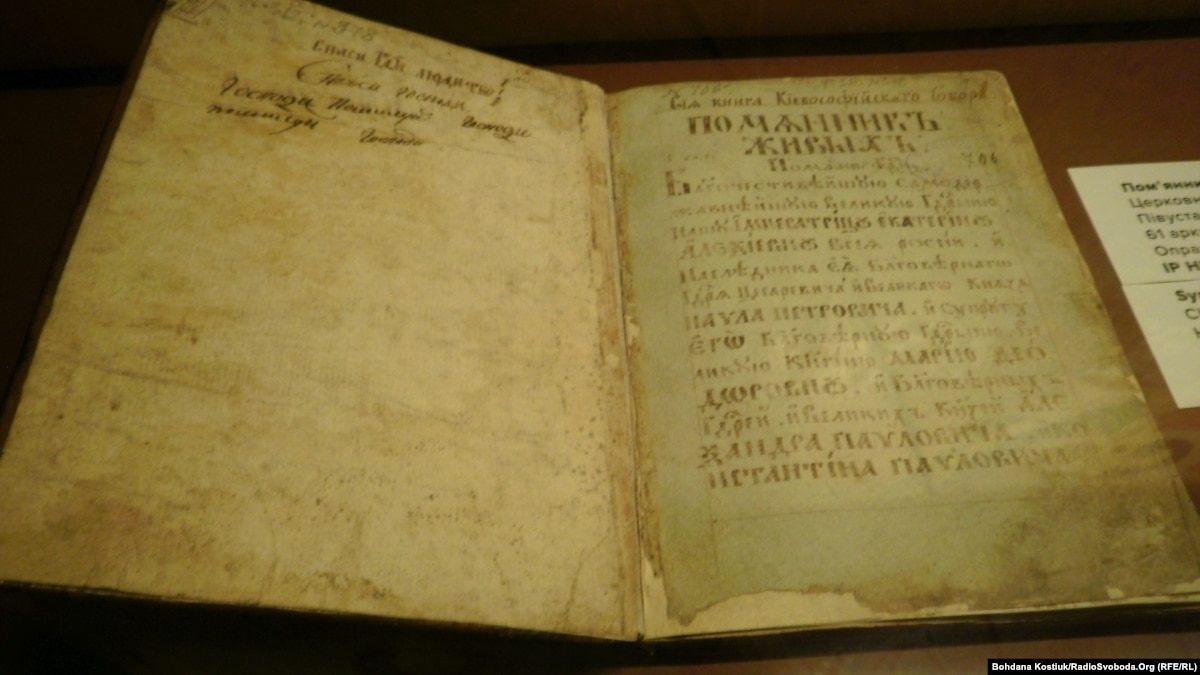 № 378
Спаси Гди люди тво
Спаси Господи
Господи Помилуй Господи
помилуй Господи
Сїя книга Кїевософїйскаго Собора
ПОМѦННИКЪ
ЖИВЫХЪ.
Помѧни Гди
Благочестивѣйшую Самодер
жавнѣйшую великую Гдрыню
нашу ІМПЕРАТРИЦУ ЕКАТЕРИНУ
АЛЕѮІЕВНУ всеѧ россїи. й
наслѣдника еѧ Благовѣрнаго
Гдрѧ Цесаревича й великагѡ Кнѧзѧ
ПАУЛА ПЕТРОВИЧА. й супругу
егѡ Благовѣрную Гдрыню ве
ликую Кнгиню МАРІЮ ѲЕО
ДѠРОВНУ. й Благовѣрныхъ
Гдрей. й великихъ Кнзей АЛЕ
ѮАНДРА ПАУЛОВИЧА й КО
НСТАНТІНА ПАУЛОВИЧА
Пом'янни
Церковн
Півуста
61 арк
Опра
ІР Н
Sy
Bohdana Kostiuk/RadioSvoboda.Org (RFE/RL)